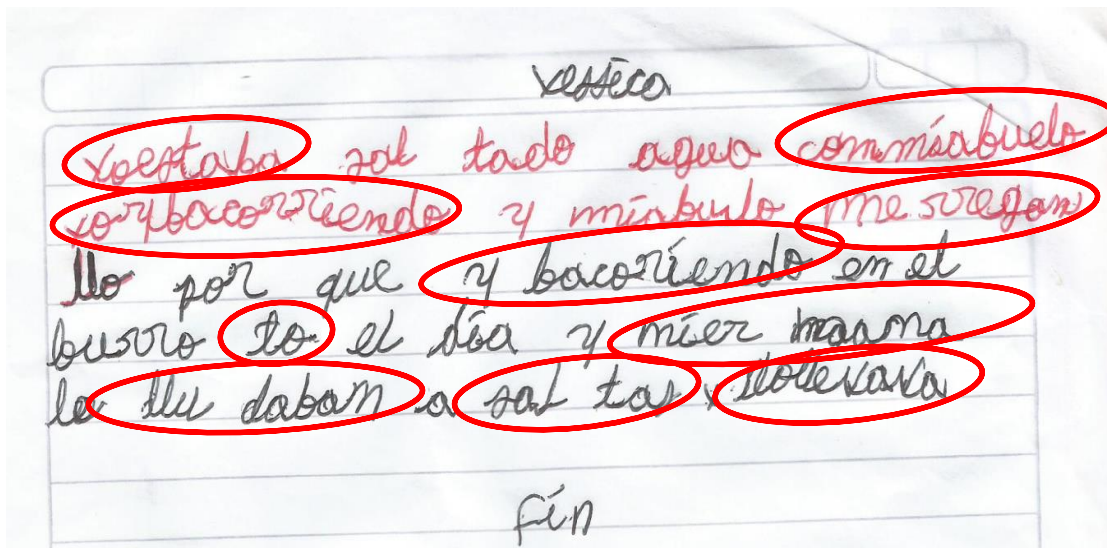 yessica
yoestaba sal tado agua commiabuelo
yoybacorriendo y miabulo me rregan
llo por que y bacoriendo en el
burro to el dia y mier maana
le llu daban a sal tar
fin